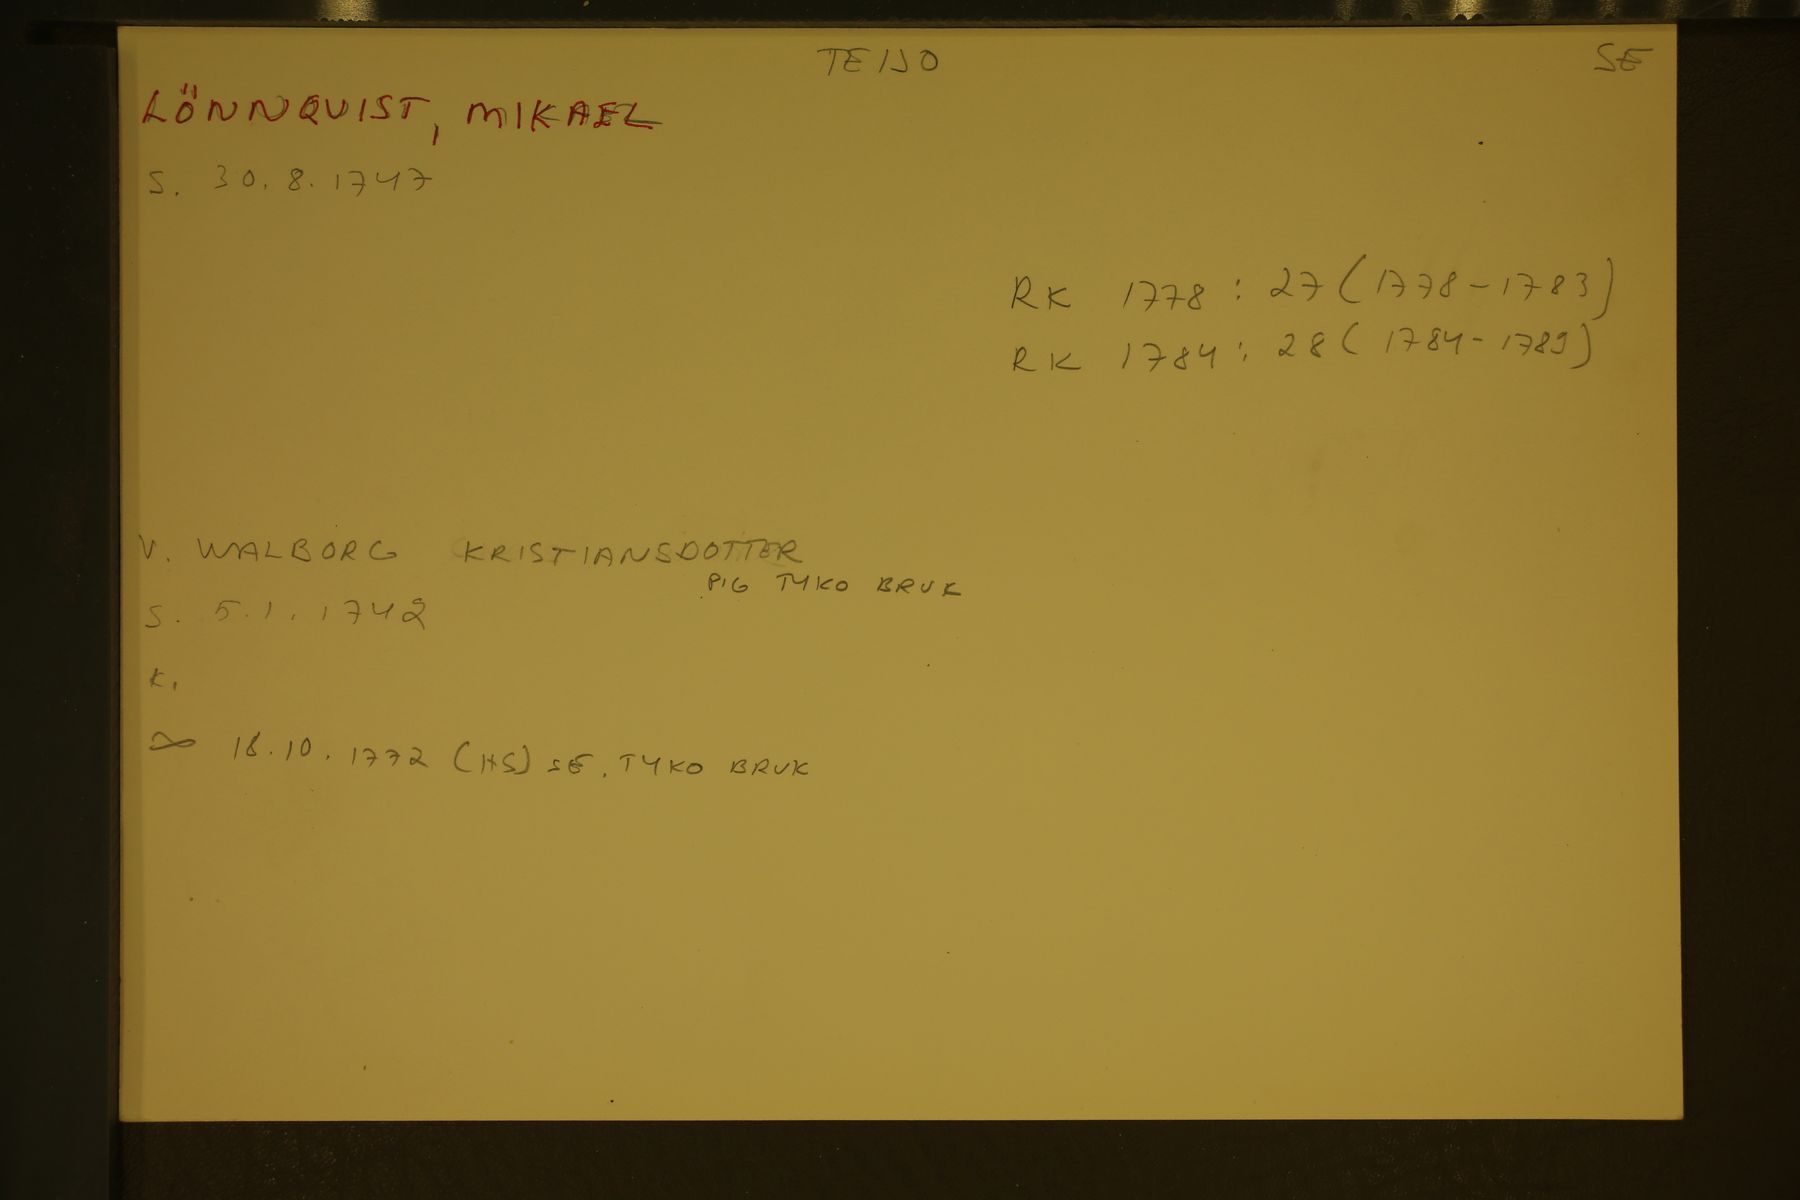 TEIJO
SE
LÖNNQUIST, MIKAEL
S. 30.8.1747
RK 1778: 27 (1778-1783)
RK 1784: 28 (1784-1789)
V. WALBORG KRISTIANSDOTTER
PIG TYKO BRUK
S. 5.1.1742
K.
∞ 18.10.1772 (HS) SE. TYKO BRUK